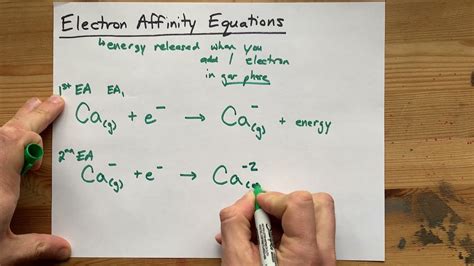 Electron Affinity Equations
↳energy released when you
add 1 electron
in gas phase
1st EA EA₁
Ca(g) + e⁻ → Ca⁻(g) + energy
2nd EA
Ca⁻(g) + e⁻ → Ca⁻²(g